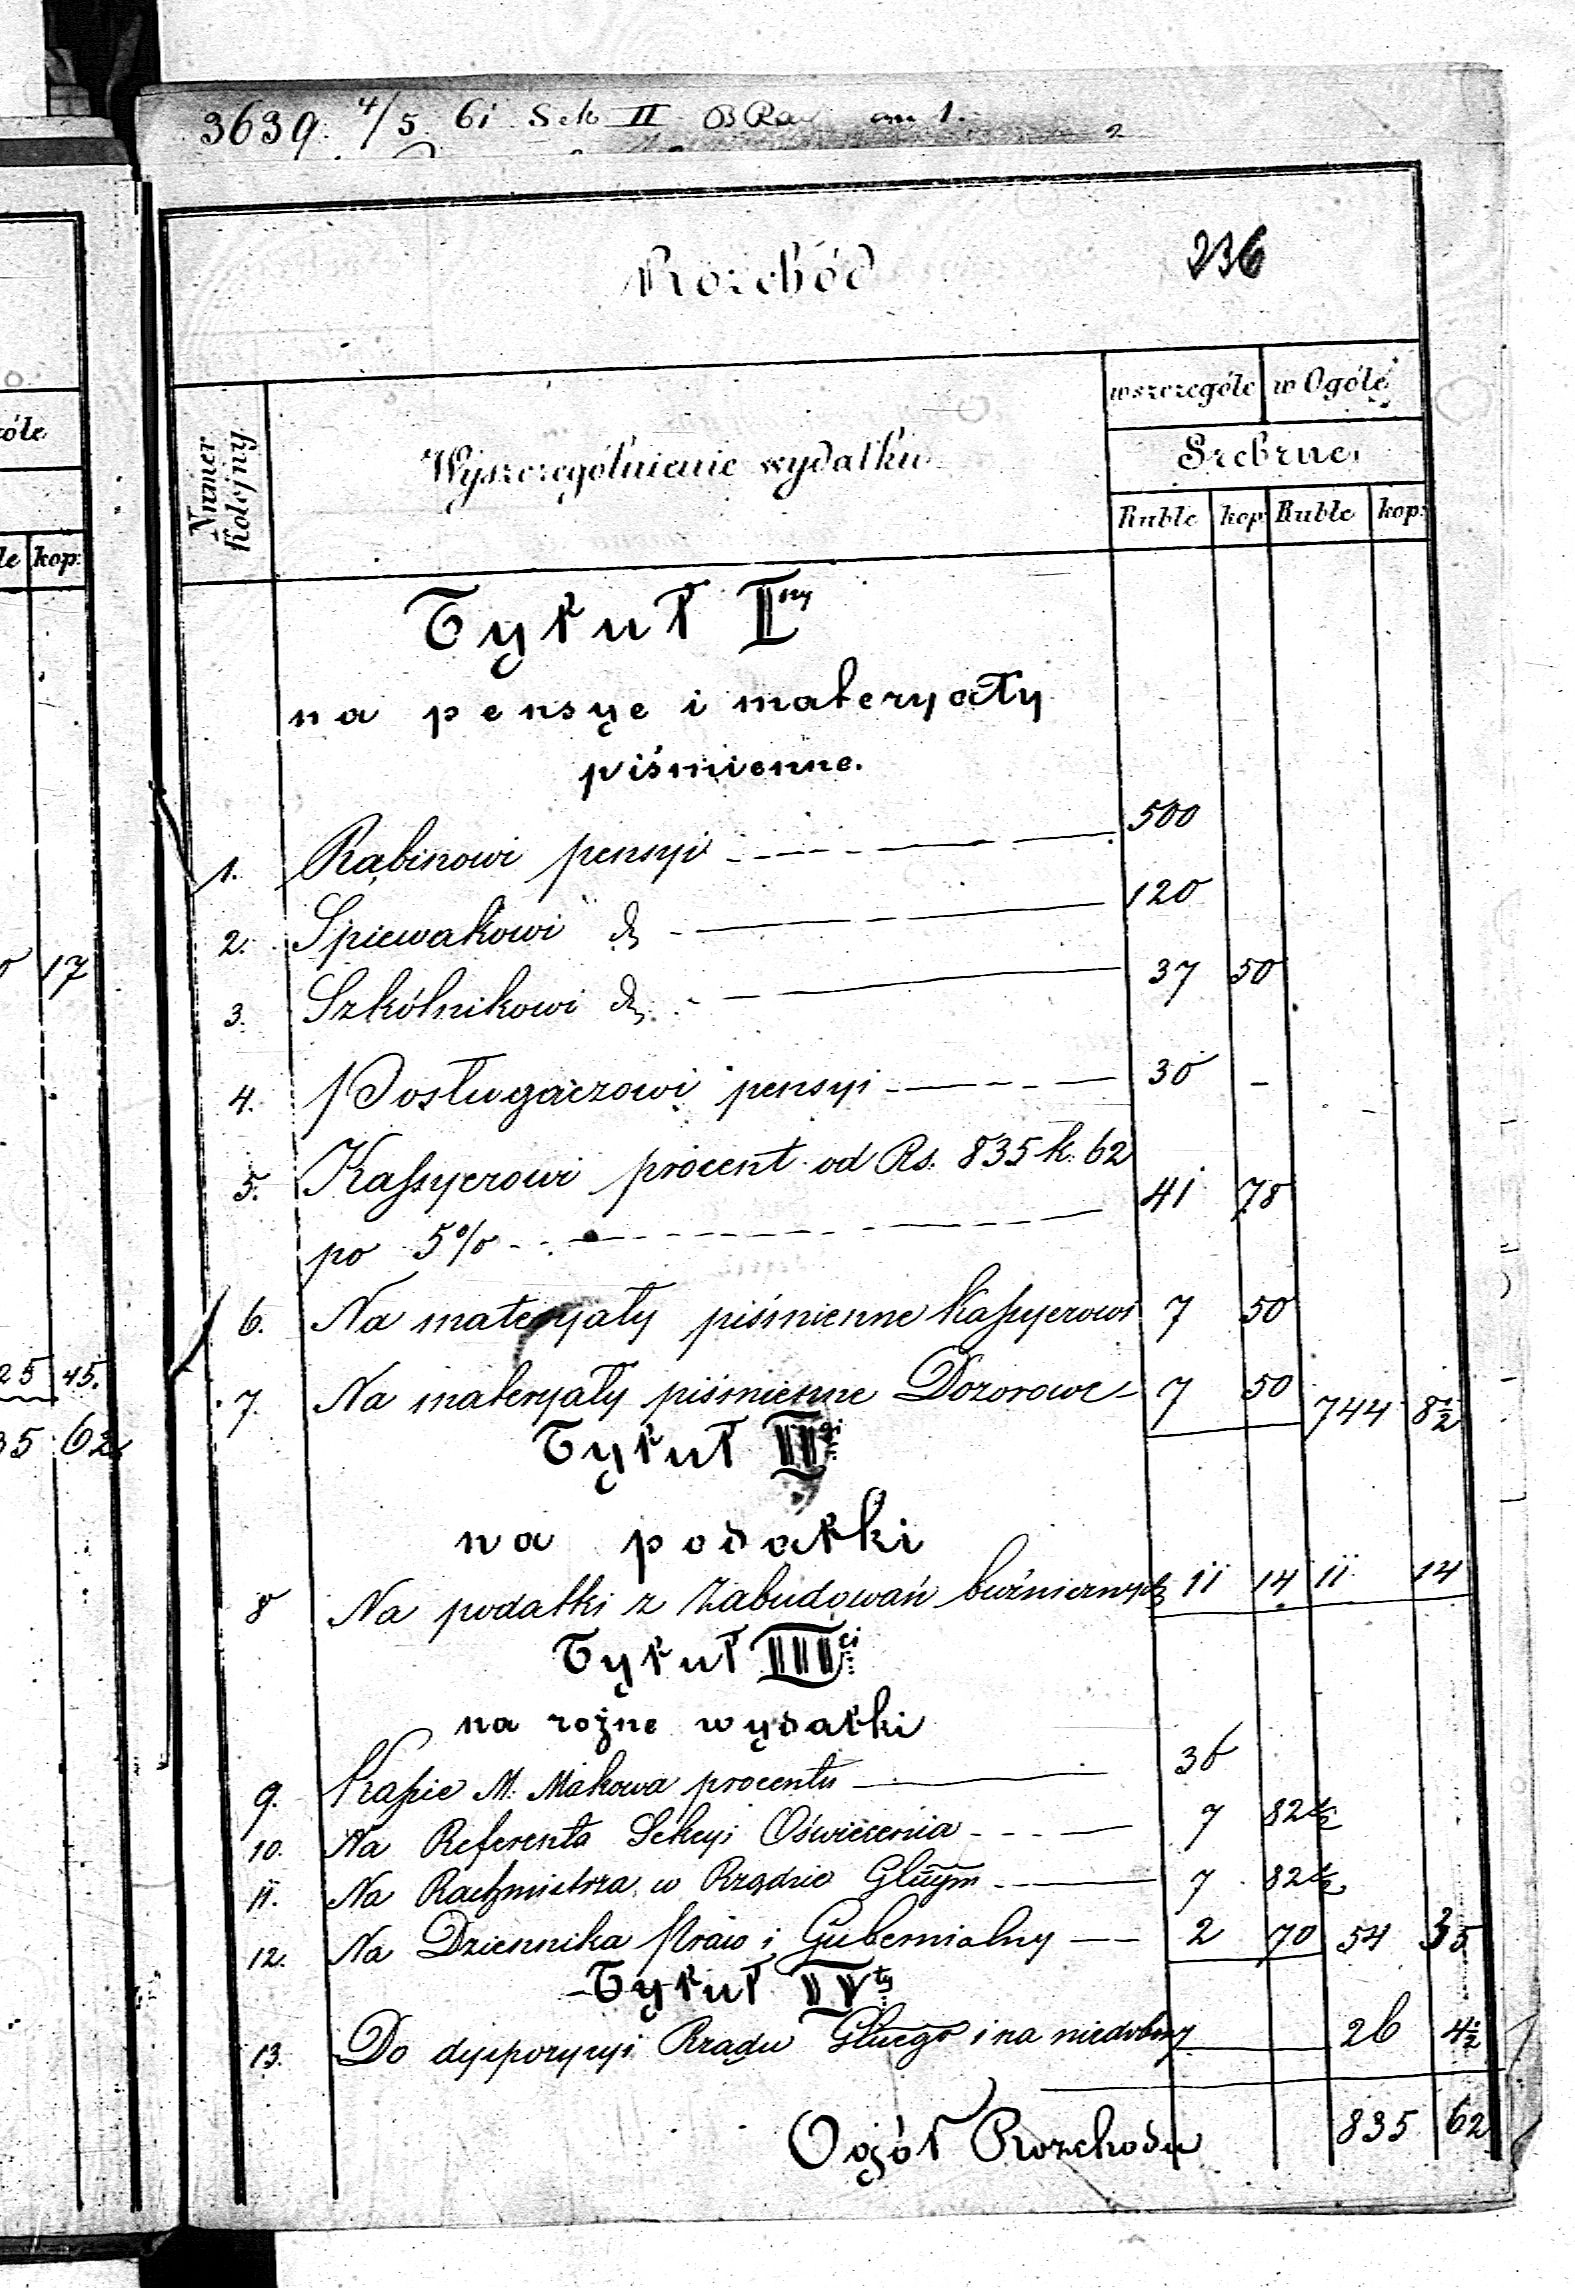 3639 4/5 61 Sek II
2
Rozchód 236
óle
le kop:
17
25 45.
35 62
Numer Kolejny
Wyszczególnienie wydatku
wszczególe w Ogóle
Srebrne
Ruble kop: Ruble kop:
Tytuł I ny
na pensye i materyały
piśmienne.
1. Rabinowi pensyi 500
2. Spiewakowi dº 120
3. Szkólnikowi dº 37 50
4. Posługaczowi pensyi 30 -
5. Kassyerowi procent od Rs. 835 k. 62
po 5% 41 78
6. Na materyały piśmienne Kassyerowi 7 50
7. Na materyały piśmienne Dozorowe 7 50 744 8½
Tytuł II gi
na podatki
8 Na podatki z Zabudowań bużnicznych 11 14 11 14
Tytuł III ci
na rożne wydatki
9. Kassie M. Makowa procentu 36
10. Na Referenta Sekcyi Oświecenia 7 82½
11. Na Rachmistrza w Rządzie Glnym 7 82½
12. Na Dziennika Praw i Gubernialny 2 70 54 35
Tytuł IV ty
13. Do dyspozycyi Rządu Glnego i na niedobory 26 4½
Ogół Rozchodu 835 62